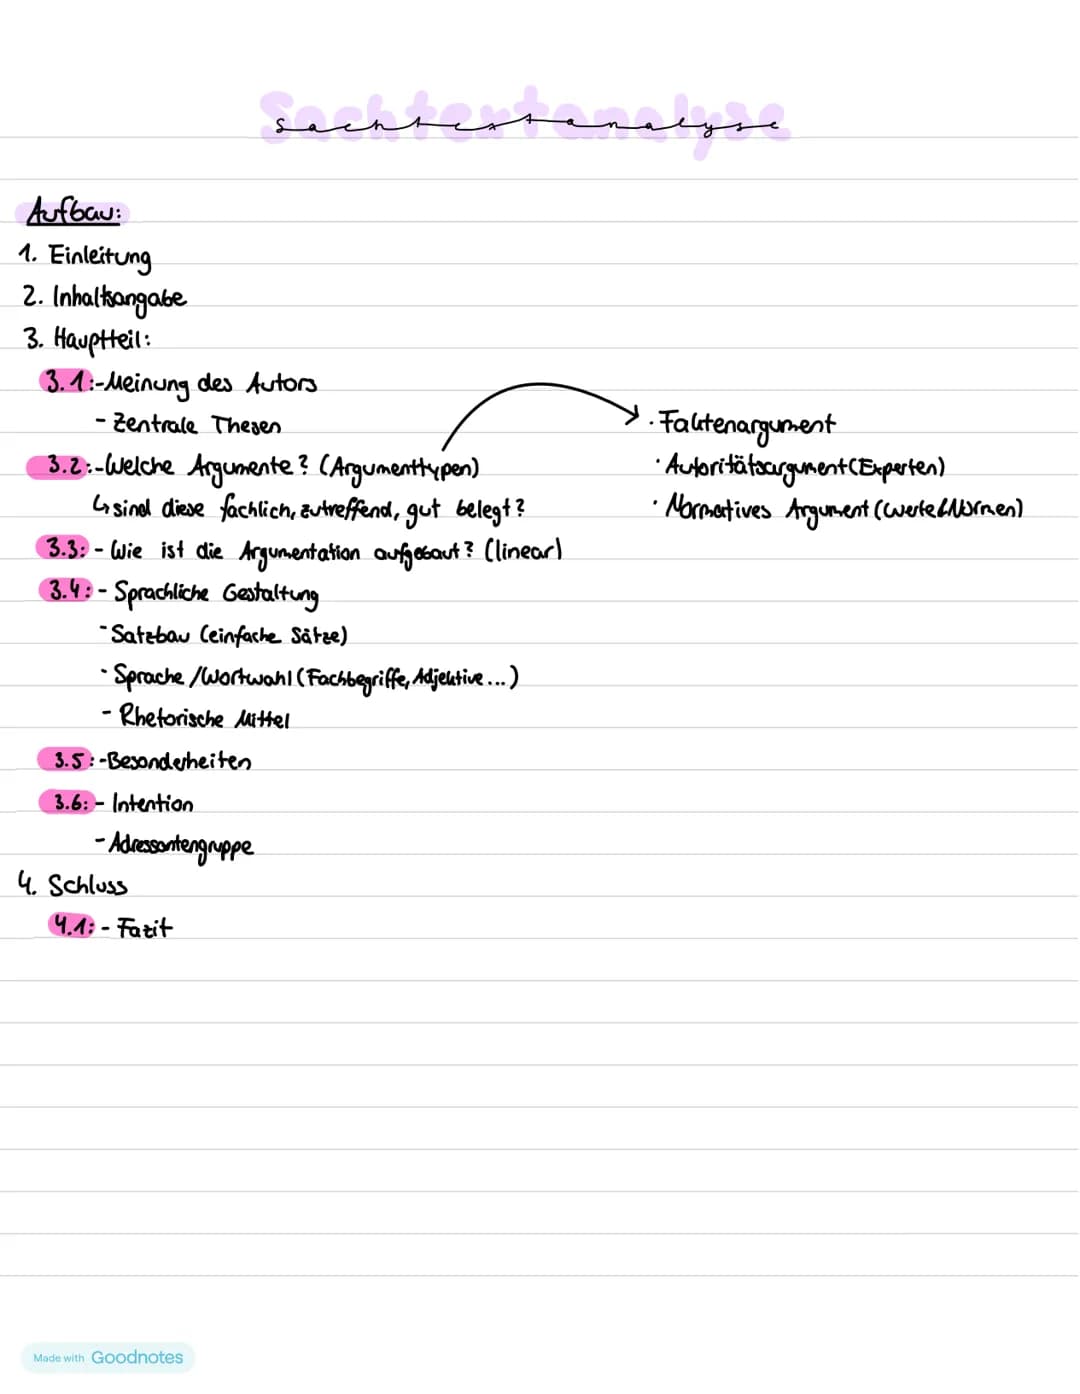 Sachtextanalyse
Aufbau:
1. Einleitung
2. Inhaltsangabe
3. Hauptteil:
3.1:-Meinung des Autors
- Zentrale Thesen
3.2:-Welche Argumente? (Argumenttypen)
↳ sind diese fachlich, zutreffend, gut belegt?
· Faktenargument
· Autoritätsargument (Experten)
· Normatives Argument (Werte & Normen)
3.3: - Wie ist die Argumentation aufgebaut? (linear)
3.4: - Sprachliche Gestaltung
- Satzbau (einfache Sätze)
- Sprache /Wortwahl (Fachbegriffe, Adjektive...)
- Rhetorische Mittel
3.5: -Besonderheiten
3.6: - Intention
- Adressantengruppe
4. Schluss
4.1: - Fazit
Made with Goodnotes